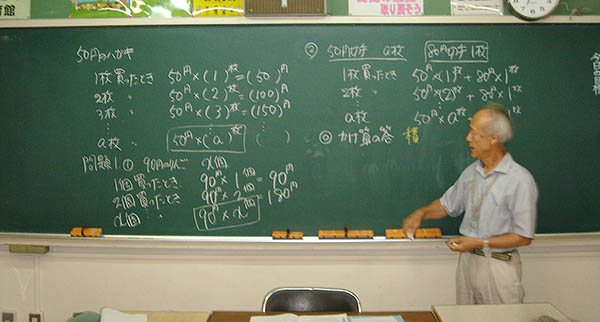 50円のハガキ
1枚買ったとき 50円×(1)枚=(50)円
2枚 〃 50円×(2)枚=(100)円
3枚 〃 50円×(3)枚=(150)円
a枚 50円×(a)枚 ( )
問題1 ① 90円のりんご x個
1個買ったとき 90円×1個=90円
2個買ったとき 90円×2個=180円
x個 〃 90円×x個
② 50円切手 a枚 80円切手1枚
1枚買ったとき 50円×1枚+80円×1枚
2枚 〃 50円×2枚+80円×1枚
a枚 50円×a枚
◎ かけ算の答 積
取り戻そう